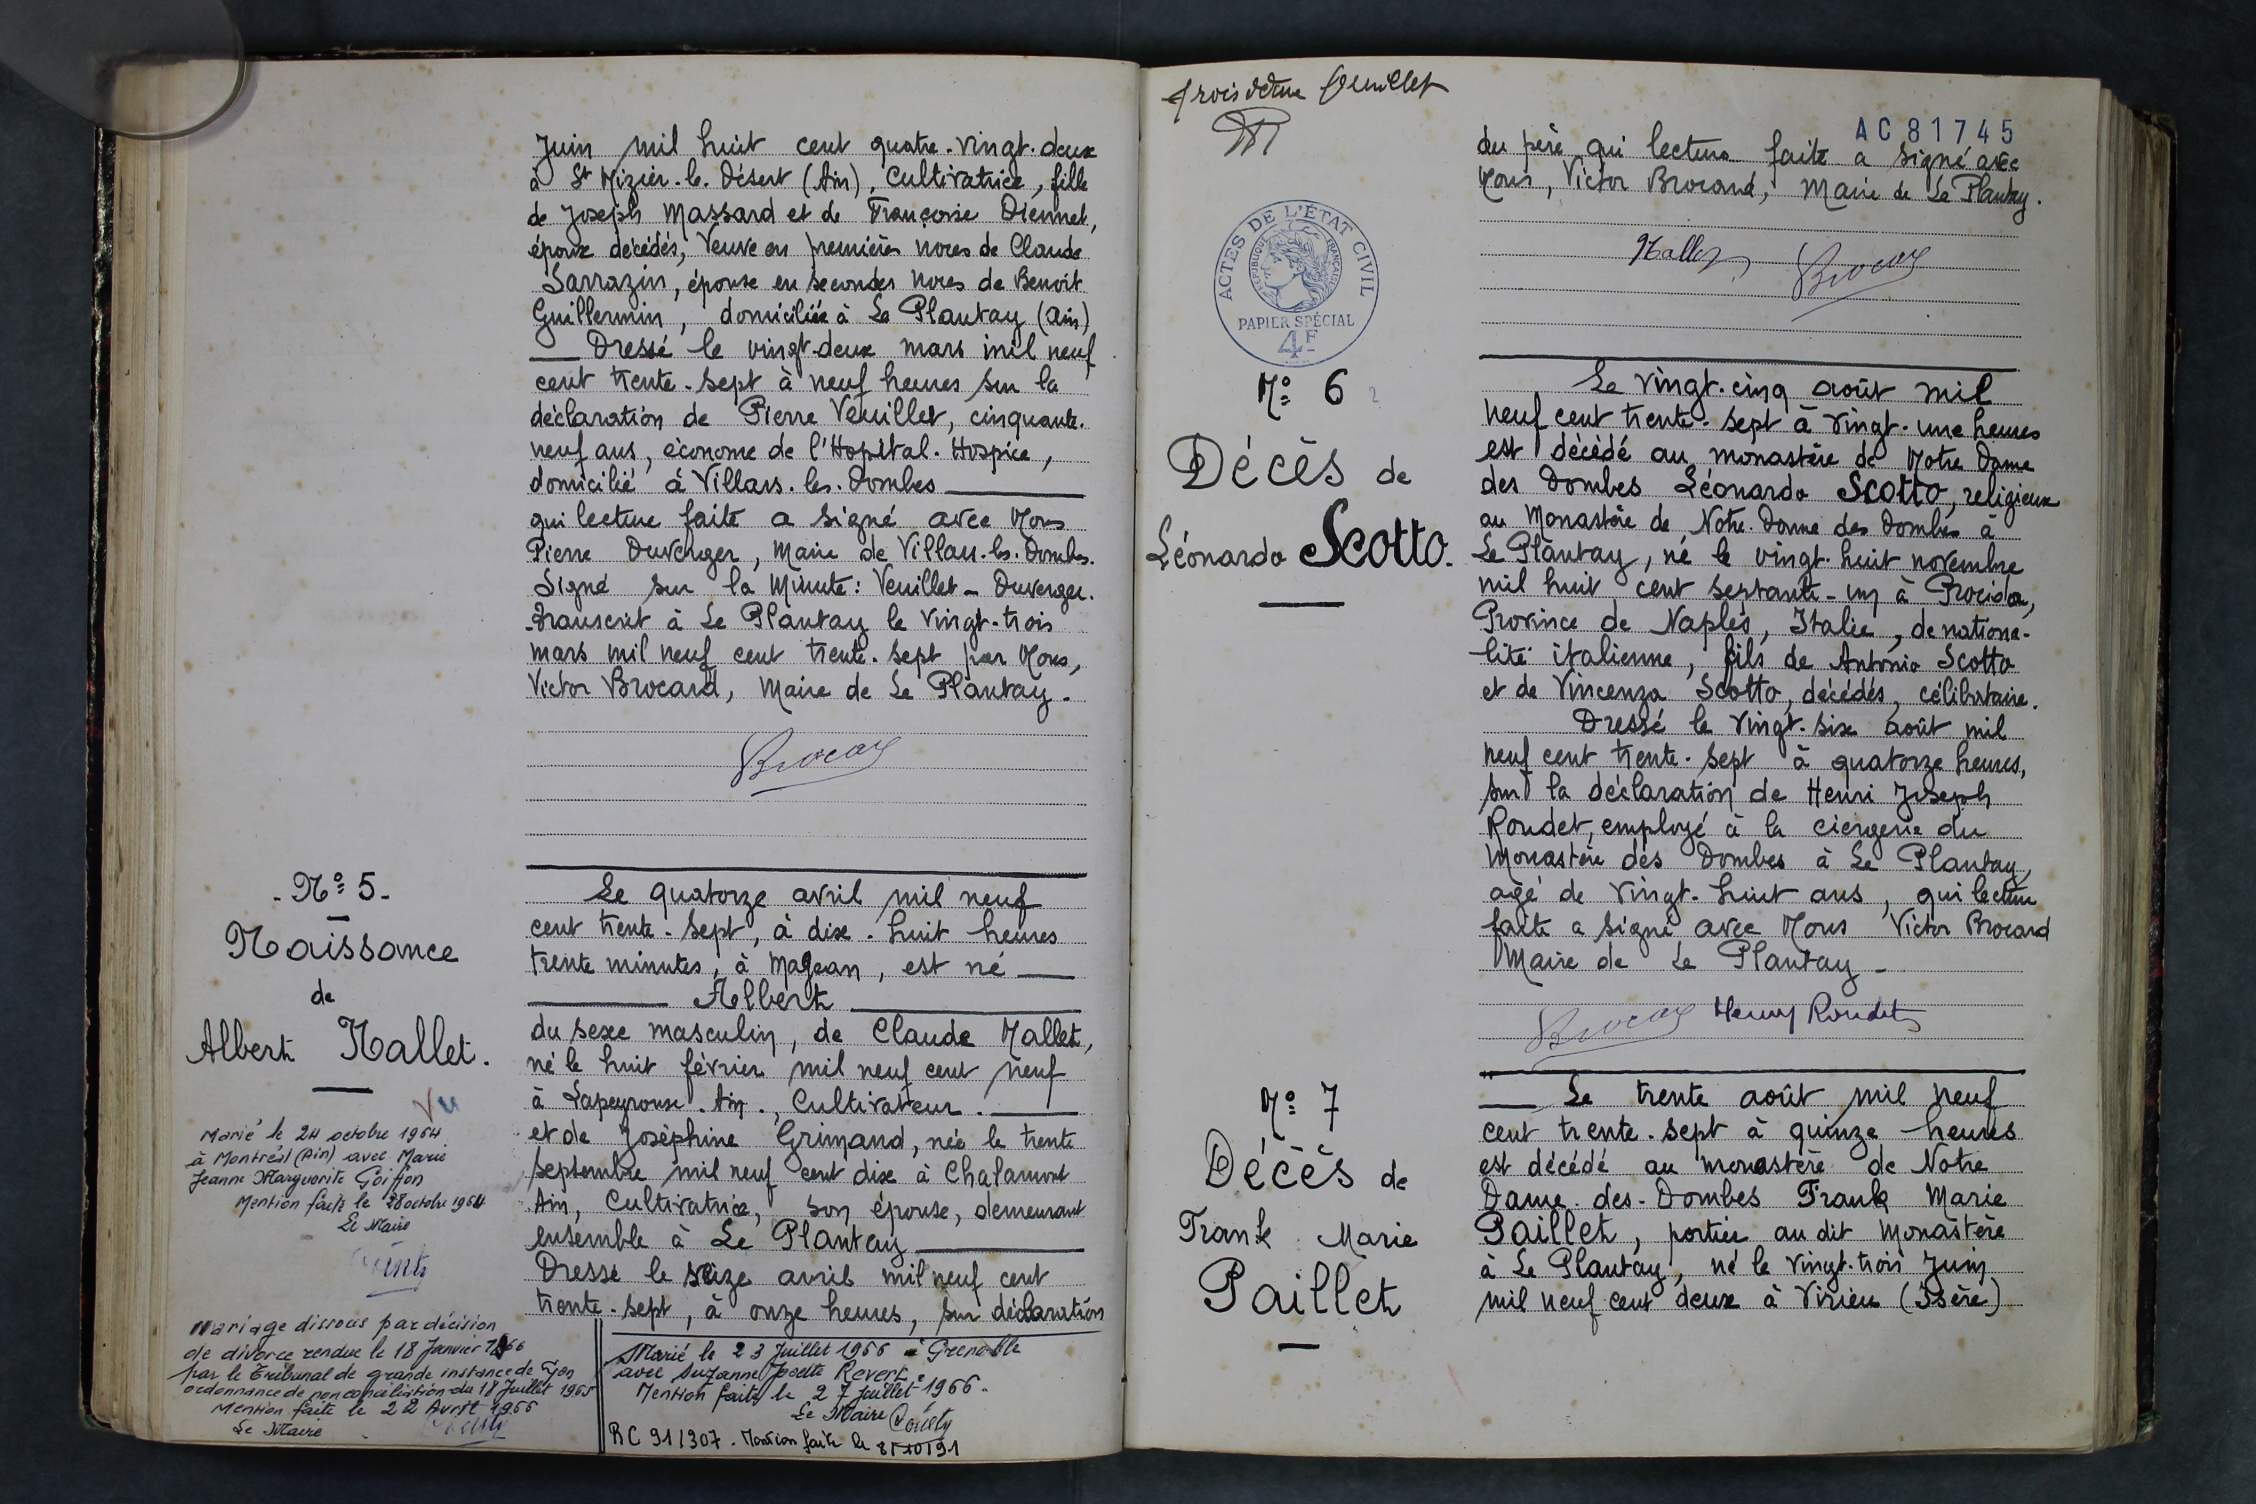 Juin mil huit cent quatre-vingt-deux
à St Nizier-le-Désert (Ain), Cultivatrice, fille
de Joseph Massard et de Françoise Diennet,
époux décédés, Veuve en premières noces de Claude
Sarrazin, épouse en secondes noces de Benoit
Guillermin, domiciliée à Le Plantay (Ain)
Dressé le vingt-deux mars mil neuf
cent trente-sept à neuf heures sur la
déclaration de Pierre Veuillet, cinquante-
neuf ans, économe de l'Hopital-Hospice,
domicilié à Villars-les-Dombes
qui lecture faite a signé avec Nous
Pierre Duverger, Maire de Villars-les-Dombes.
Signé sur la Minute: Veuillet - Duverger.
Transcrit à Le Plantay le vingt-trois
mars mil neuf cent trente-sept par Nous,
Victor Brocard, Maire de Le Plantay.
Brocard
- N° 5 -
Naissance
de
Albert Nallet.
Vu
Marié le 24 octobre 1964
à Montréal (Ain) avec Marie
Jeanne Marguerite Goiffon
Mention faite le 28 octobre 1964
Le Maire
Mariage dissous par décision
de divorce rendue le 18 Janvier 1966
par le Tribunal de grande instance de Lyon
ordonnance de non conciliation du 18 Juillet 1965
Mention faite le 22 Avril 1966
Le Maire
Le quatorze avril mil neuf
cent trente-sept, à dix-huit heures
trente minutes, à Majean, est né
Albert
du sexe masculin, de Claude Nallet,
né le huit février mil neuf cent neuf
à Lapeyrouse-Ain, Cultivateur.
et de Joséphine Grimand, née le trente
septembre mil neuf cent dix à Chalamont
Ain, Cultivatrice, son épouse, demeurant
ensemble à Le Plantay
Dressé le seize avril mil neuf cent
trente-sept, à onze heures, sur déclaration
Marié le 23 Juillet 1966 à Grenoble
avec Suzanne Josette Revert.
Mention faite le 27 Juillet 1966.
Le Maire
RC 91/307. Mention faite le 8/10/91
Troisième feuillet
AC 81745
du père qui lecture faite a signé avec
Nous, Victor Brocard, Maire de Le Plantay.
Nallet Brocard
ACTES DE L'ÉTAT CIVIL
RÉPUBLIQUE FRANÇAISE
PAPIER SPÉCIAL
4F
N° 6
Décès de
Léonardo Scotto.
Le vingt-cinq août mil
neuf cent trente-sept à vingt-une heures
est décédé au monastère de Notre Dame
des Dombes Léonardo Scotto, religieux
au Monastère de Notre-Dame des Dombes à
Le Plantay, né le vingt-huit novembre
mil huit cent septante-un à Procida,
Province de Naples, Italie, de nationa-
lité italienne, fils de Antonio Scotto
et de Vincenza Scotto, décédés, célibataire.
Dressé le vingt-six août mil
neuf cent trente-sept à quatorze heures,
sur la déclaration de Henri Joseph
Roudet, employé à la ciergerie du
Monastère des Dombes à Le Plantay,
agé de vingt-huit ans, qui lecture
faite a signé avec Nous Victor Brocard
Maire de Le Plantay -
Brocard Henry Roudet
N° 7
Décès de
Frank Marie
Paillet
Le trente août mil neuf
cent trente-sept à quinze heures
est décédé au monastère de Notre
Dame-des-Dombes Frank Marie
Paillet, portier au dit Monastère
à Le Plantay, né le vingt-trois Juin
mil neuf cent deux à Virieu (Isère)